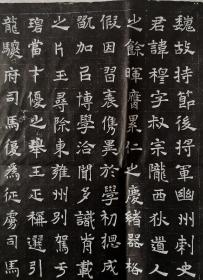 魏故持節後將軍幽州刺史
君諱穆字叔宗隴西狄道人
之餘暉膺累仁之慶緒器格
假因習裹儁異於學初揔成
加召博學洽聞多識肯載
之片玉尋除東雍州別駕于
碧當十優之舉王正稱選引
龍驤府司馬優爲征虜司馬